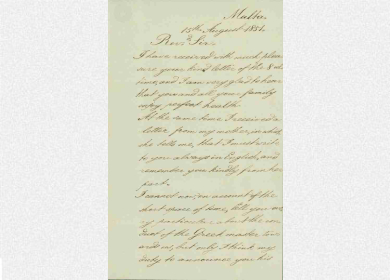 Malta
15th August 1851.
Revd. Sir.
I have received with much pleas
ure your kind letter of the
time, and I am very glad to hear
that you and all your family
enjoy perfect health.
At the same time I received a
letter from my mother, in which
she tells me, that I must write
to you always in English, and
remember you kindly from her
part.
I cannot now, on account of the
short space of time, tell you
my particulars about the con
duct of the Greek master to
, but only I think my
duty to announce you his